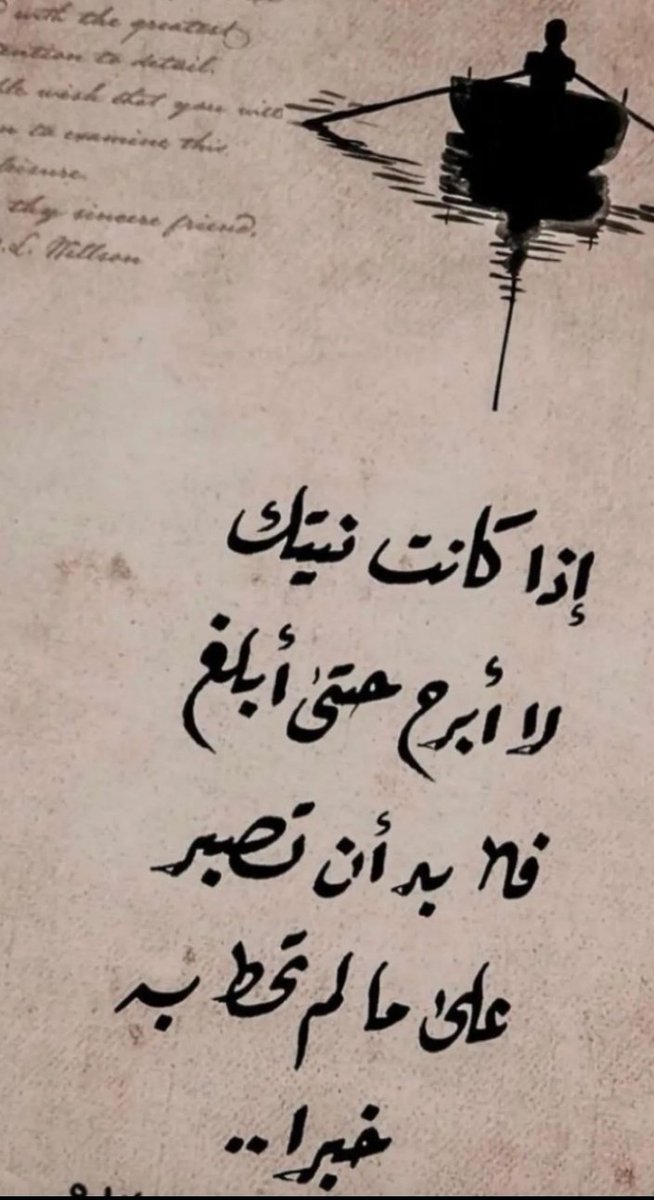 with the greatest
to detail.
wish that you will
to examine this
leisure.
thy sincere friend,
L. Willson
إذا كانت نيتك
لا أبرح حتىٰ أبلغ
فلا بد أن تصبر
علىٰ ما لم تحط به
خبرا..